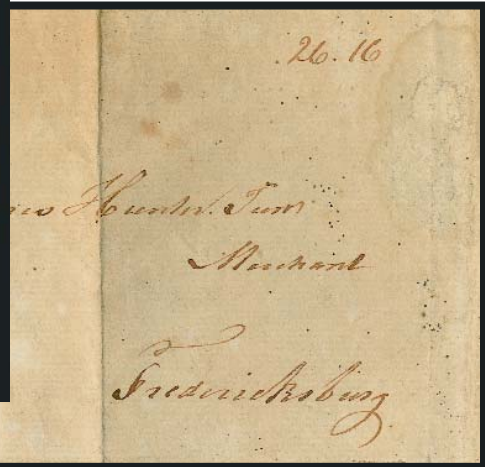 26.16
Hunter Junr
Merchant
Fredericksburg